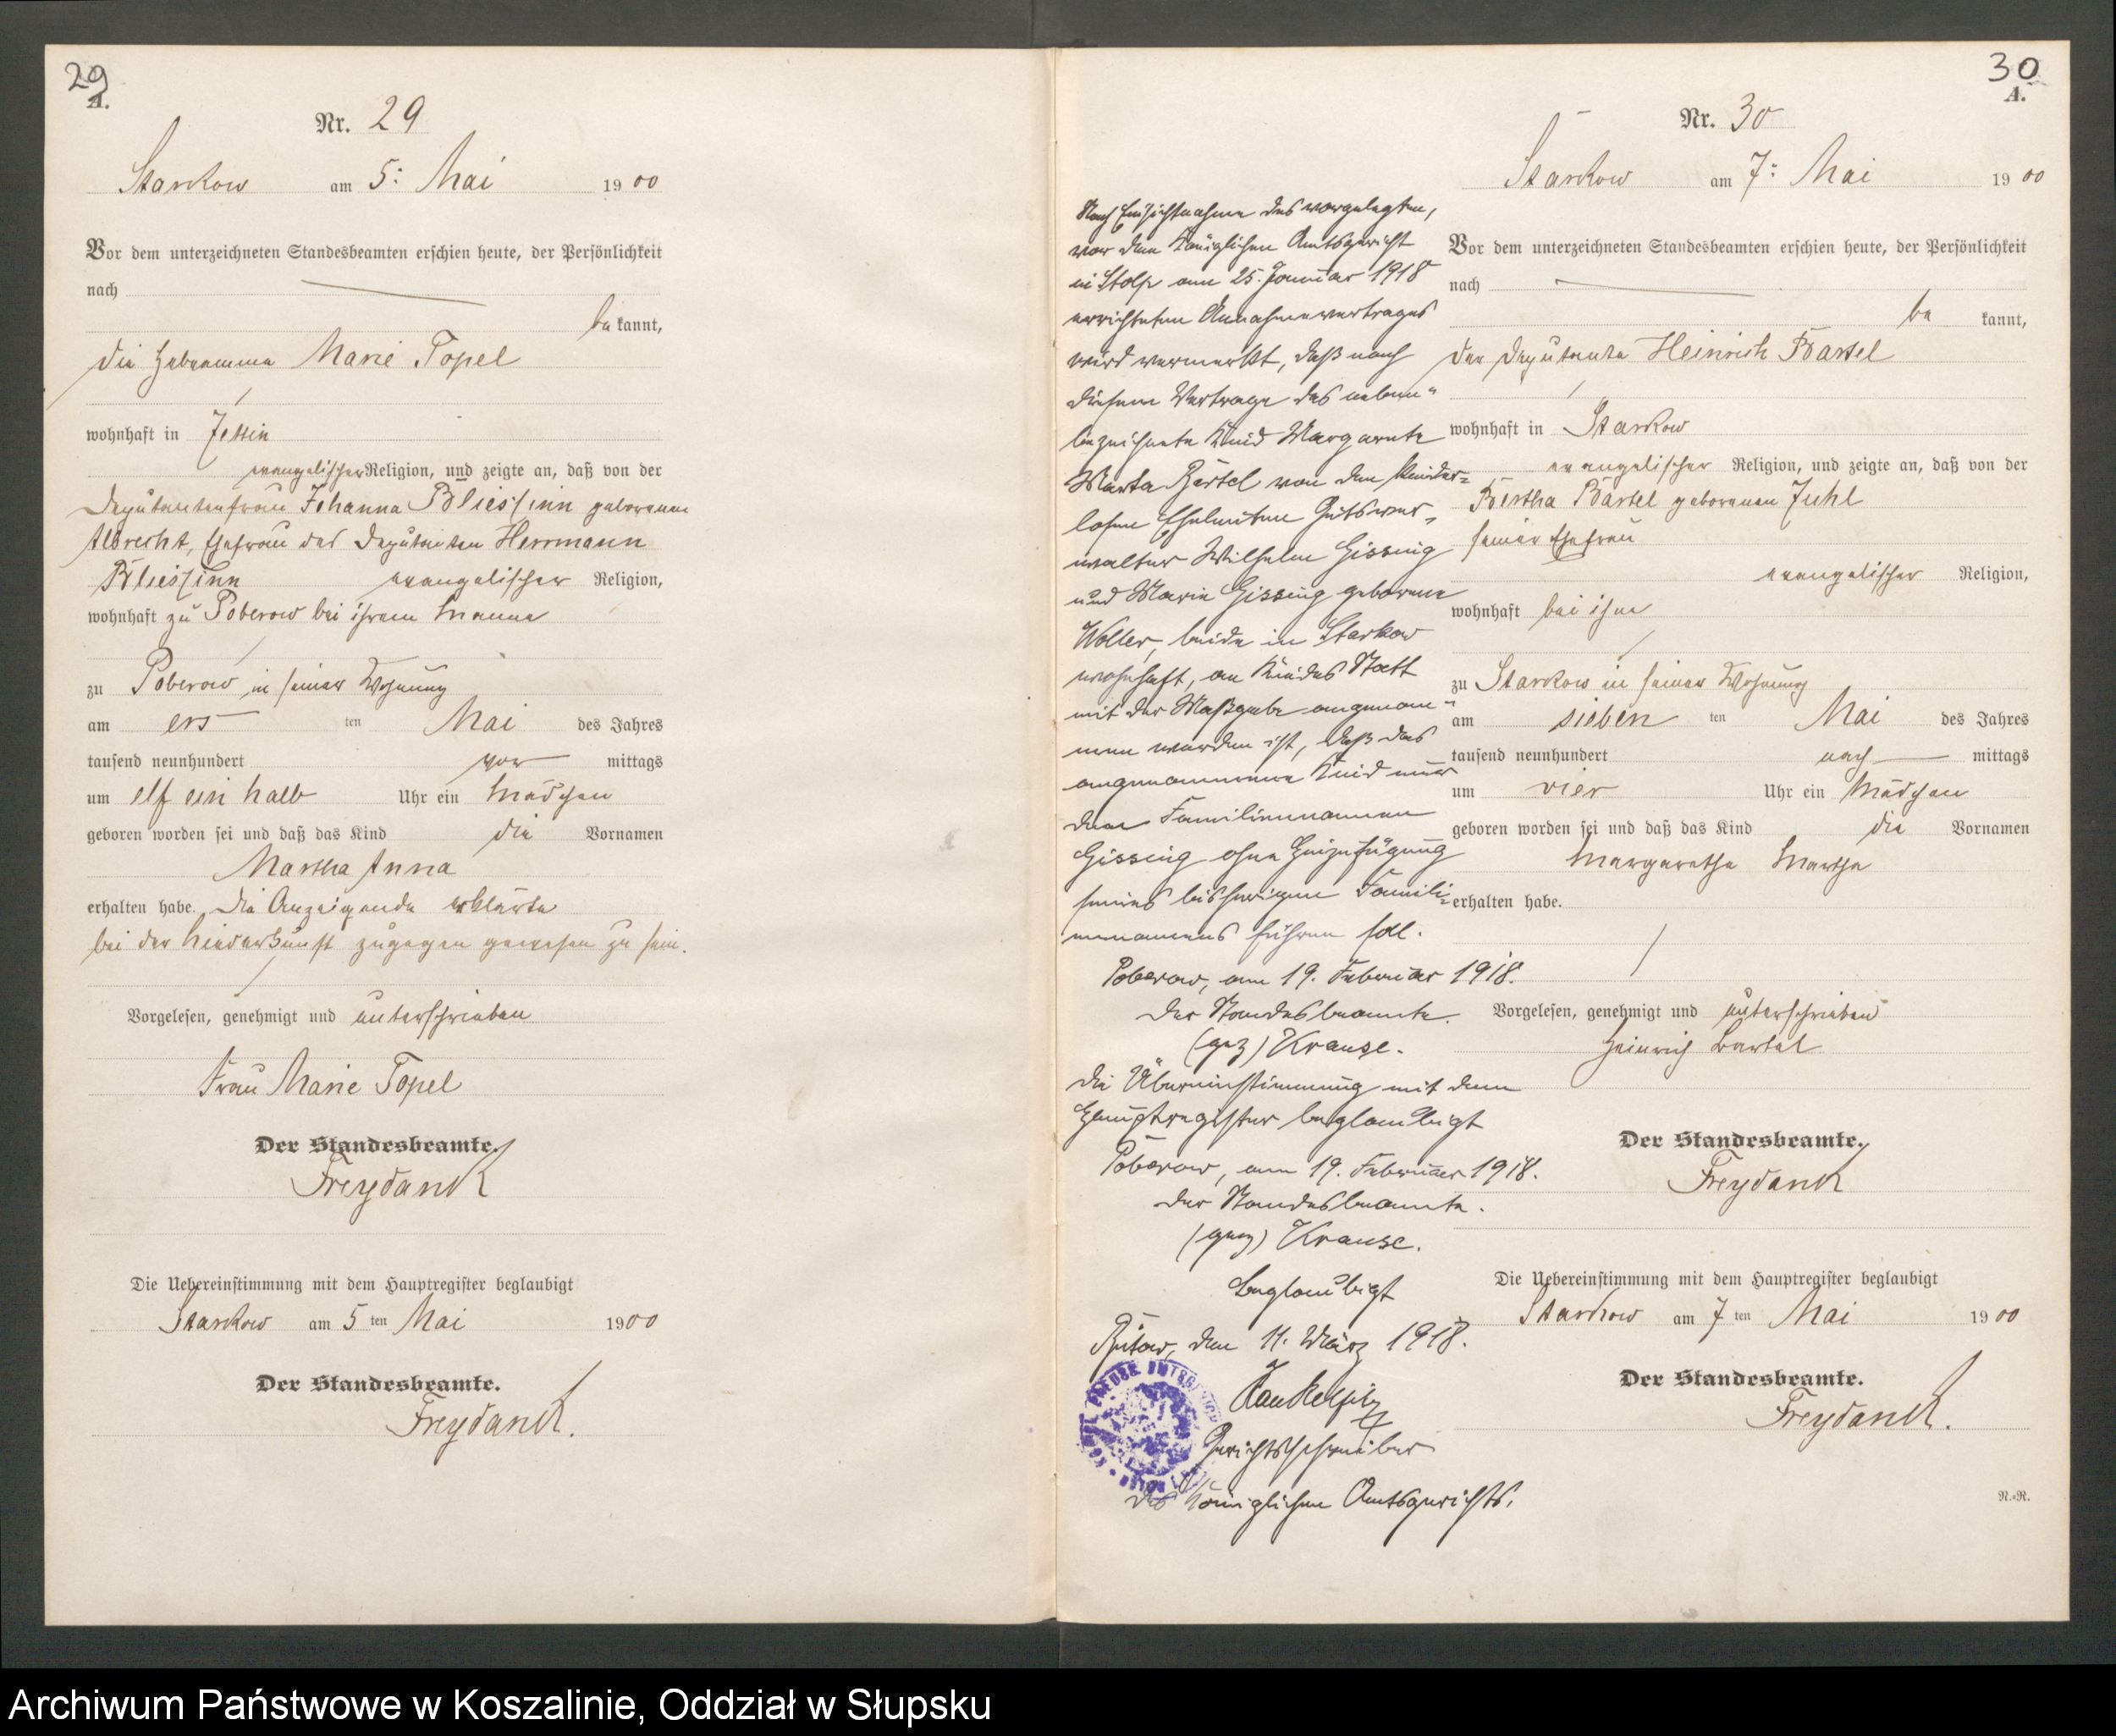 29
A.
Nr. 29
Starkow am 5: Mai 1900
Vor dem unterzeichneten Standesbeamten erschien heute, der Persönlichkeit
nach
bekannt,
die Hebeamme Marie Topel
wohnhaft in Jessin
evangelischer Religion, und zeigte an, daß von der
Deputantenfrau Johanna Bliessinn geborenen
Albrecht, Ehefrau des Deputanten Herrmann
Bliessinn evangelischer Religion,
wohnhaft zu Poberow bei ihrem Manne
zu Poberow in seiner Wohnung
am ersten Mai des Jahres
tausend neunhundert vor mittags
um elf ein halb Uhr ein Mädchen
geboren worden sei und daß das Kind die Vornamen
Martha Anna
erhalten habe. Die Anzeigende erklärte
bei der Niederkunft zugegen gewesen zu sein.
Vorgelesen, genehmigt und unterschrieben
Frau Marie Topel
Der Standesbeamte.
Freydank
Die Uebereinstimmung mit dem Hauptregister beglaubigt
Starkow am 5ten Mai 1900
Der Standesbeamte.
Freydank.
30
A.
Nr. 30
Starkow am 7: Mai 1900
Nach Einsichtnahme des vorgelegten,
vor dem Königlichen Amtsgericht
in Stolp am 25. Januar 1918
errichteten Annahmevertrages
wird vermerkt, daß nach
diesem Vertrage das neben-
bezeichnete Kind Margarete
Marta Bartel von den kinder=
losen Eheleuten Gutsver-
walter Wilhelm Gissing
und Marie Gissing geborene
Woller, beide in Starkow
wohnhaft, an Kindes Statt
mit der Maßgabe angenom-
men worden ist, daß das
angenommene Kind nur
den Familiennamen
Gissing ohne Hinzufügung
seines bisherigen Famili=
ennamens führen soll.
Poberow, am 19. Februar 1918.
Der Standesbeamte.
(gez) Krause.
Die Übereinstimmung mit dem
Hauptregister beglaubigt
Poberow, am 19. Februar 1918.
Der Standesbeamte.
(gez) Krause.
Beglaubigt
Bütow, den 11. März 1918.
Gerichtsschreiber
des Königlichen Amtsgerichts.
Vor dem unterzeichneten Standesbeamten erschien heute, der Persönlichkeit
nach
be kannt,
der Deputante Heinrich Bartel
wohnhaft in Starkow
evangelischer Religion, und zeigte an, daß von der
Bertha Bartel geborenen Juhl
seiner Ehefrau
evangelischer Religion,
wohnhaft bei ihm
zu Starkow in seiner Wohnung
am siebenten Mai des Jahres
tausend neunhundert nach mittags
um vier Uhr ein Mädchen
geboren worden sei und daß das Kind die Vornamen
Margarethe Martha
erhalten habe.
Vorgelesen, genehmigt und unterschrieben
Heinrich Bartel
Der Standesbeamte.
Freydank
Die Uebereinstimmung mit dem Hauptregister beglaubigt
Starkow am 7ten Mai 1900
Der Standesbeamte.
Freydank.
N.=R.
Archiwum Państwowe w Koszalinie, Oddział w Słupsku